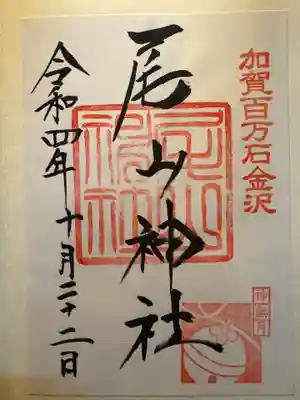 加賀百万石金沢
尾山神社
尾山神社
令和四年十月二十二日
神無月